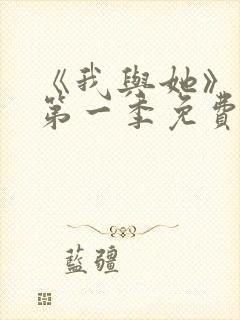 《我與她》
第一季免費
藍疆